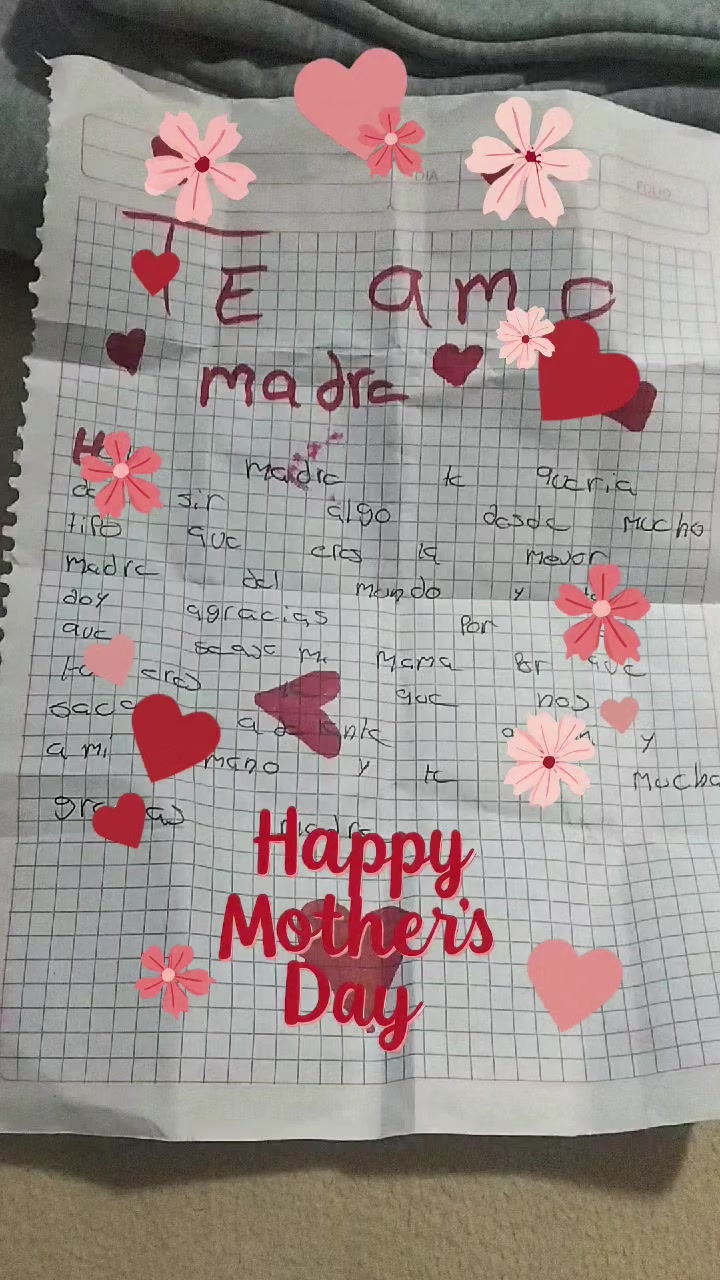 DIA
FOLIO
TE amo
madre
madre te queria
de sir algo desde mucho
tipo que eres la mevor
madre del mundo y te
doy agracias Por
que seas mi mama Por que
tu eres la que nos
saca a delante a mi y
a mi mano y te mucha
gracias madre
Happy
Mother's
Day